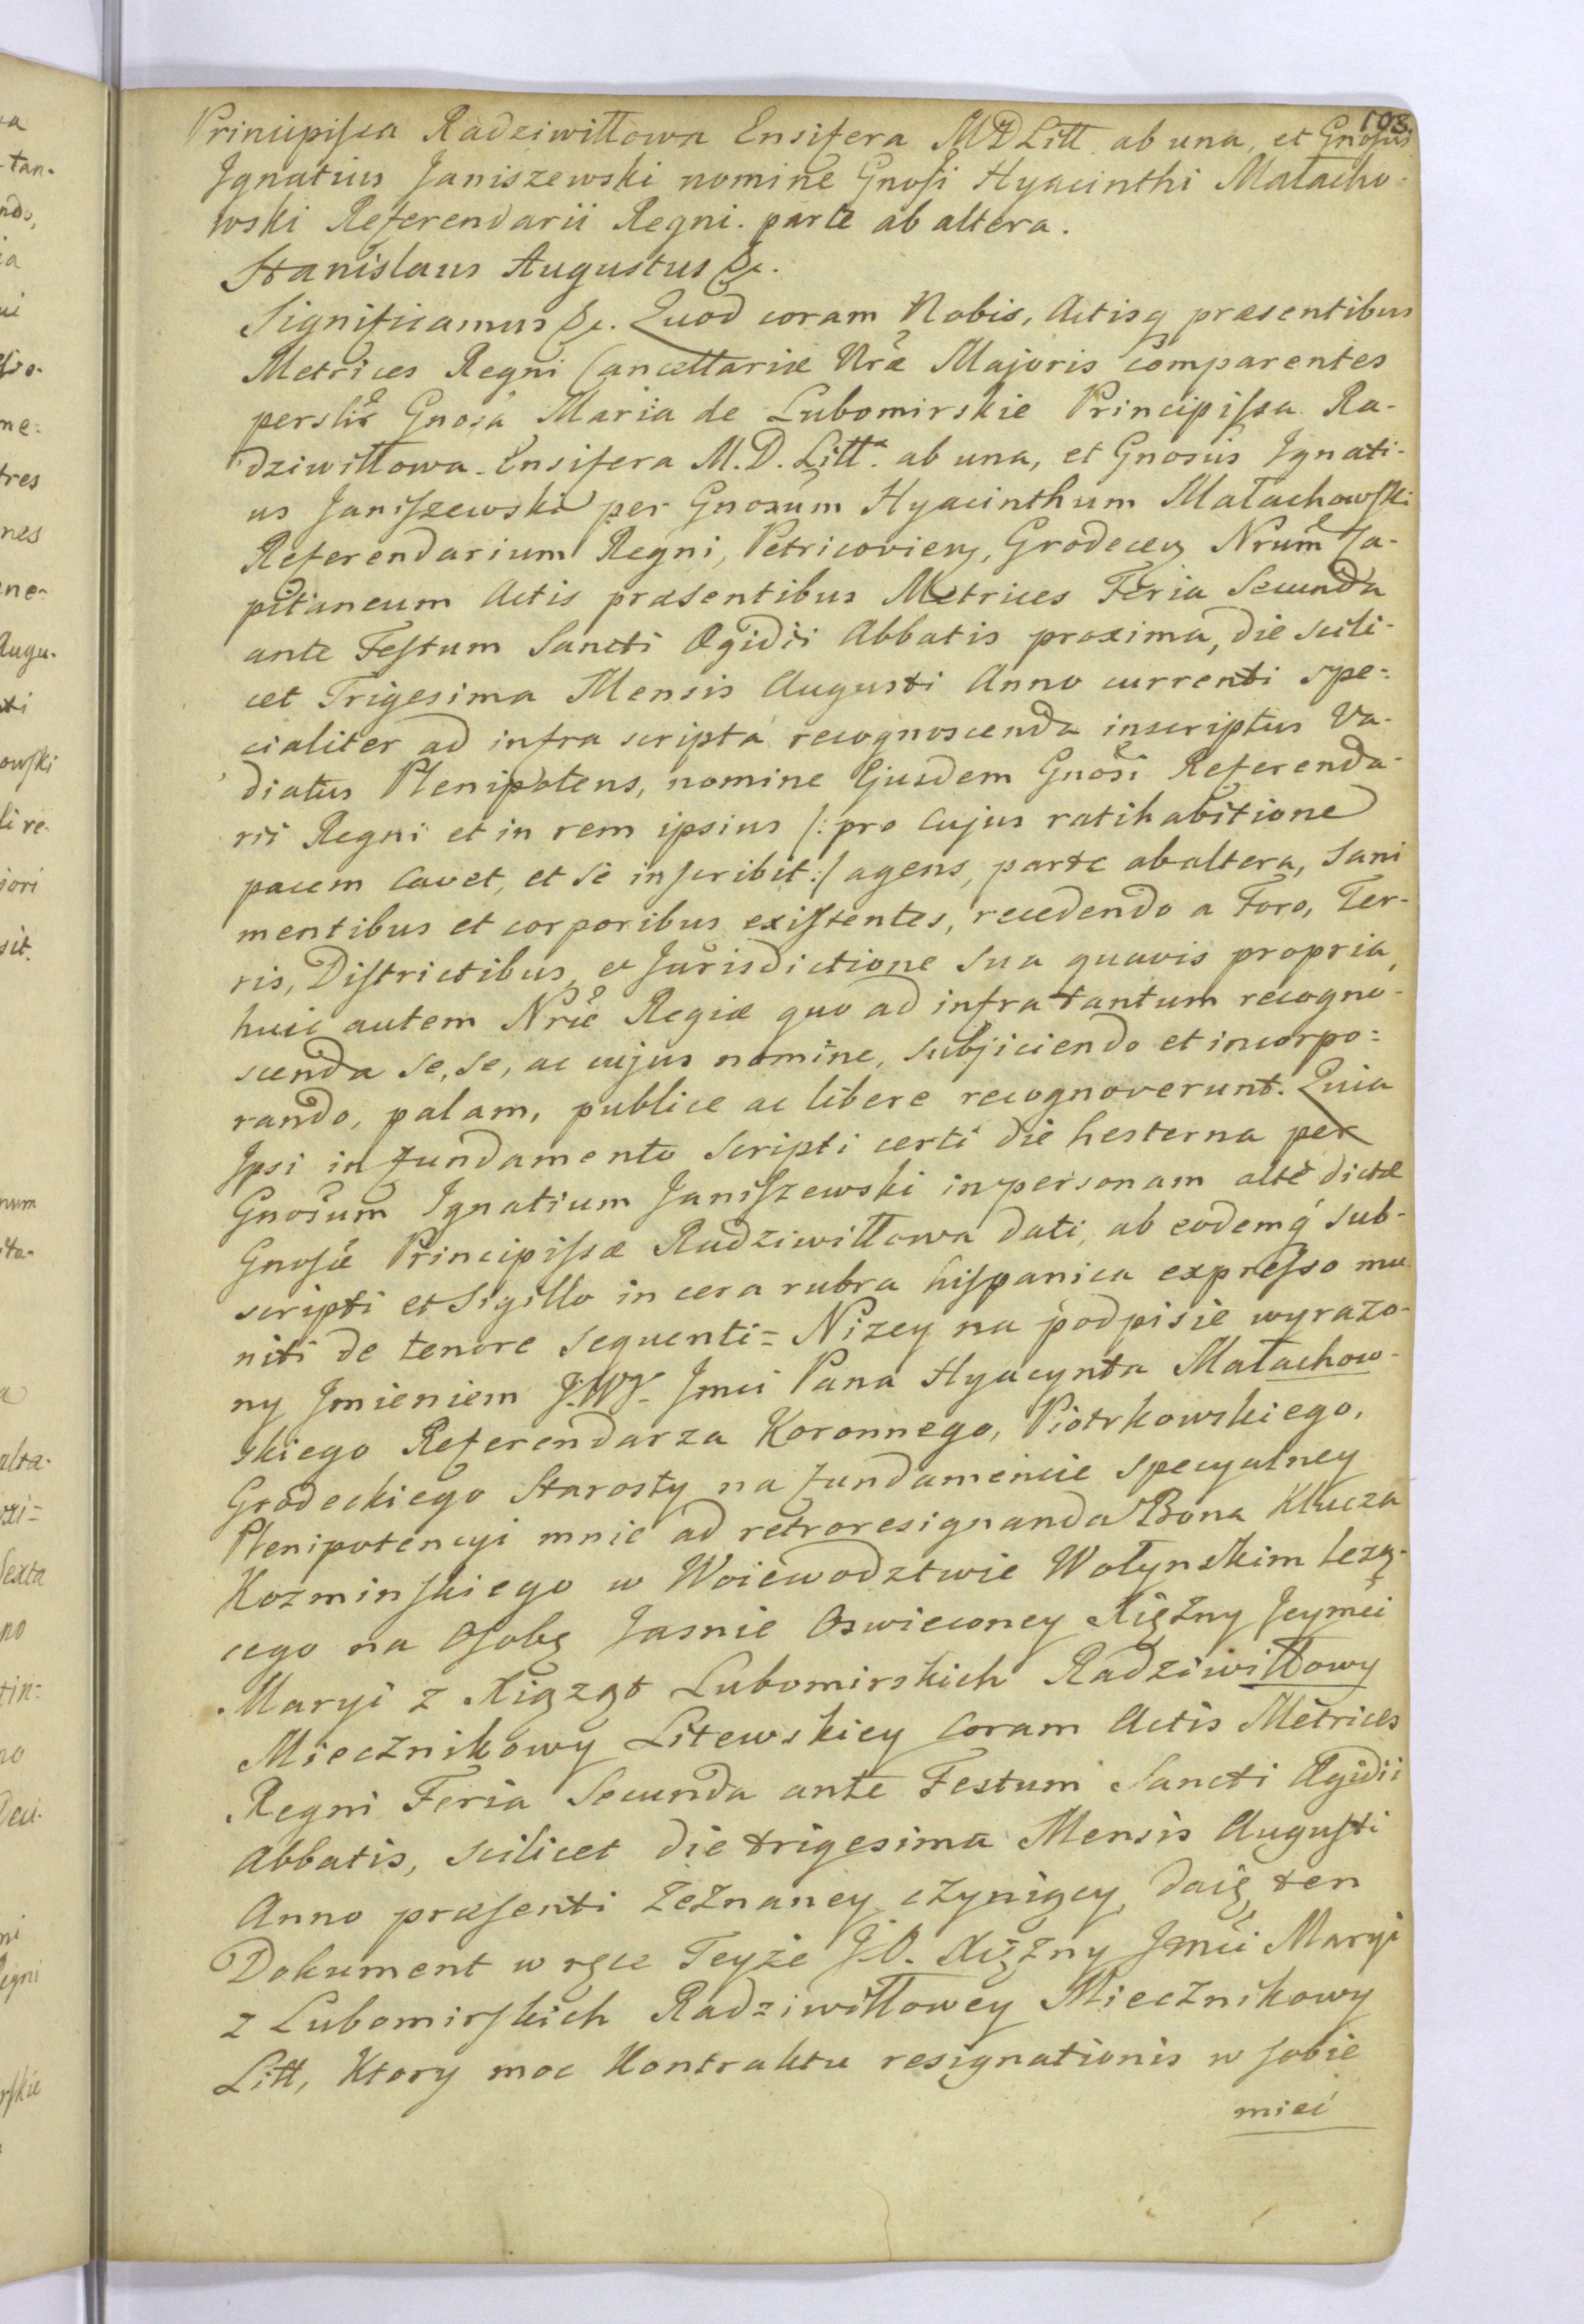 103
Principissa Radziwiłłowa Ensifera M D Litt. ab una, et Gnosus
Ignatius Janiszewski nomine Gnosi Hyacinthi Małacho-
wski Referendarii Regni. parte ab altera.
Stanislaus Augustus &c.
Significamus &c. Quod coram Nobis, Actisq præsentibus
Metrices Regni Cancellariæ Nræ Majoris comparentes
perslr Gnosa Maria de Lubomirskie Principissa Ra-
dziwiłłowa. Ensifera M. D. Litt. ab una, et Gnosus Ignati-
us Janiszewski per Gnosum Hyacinthum Małachowski
Referendarium Regni, Petricovien, Grodecen Nrum Ca-
pitaneum Actis præsentibus Metrices Feria Secunda
ante Festum Sancti Ægidii Abbatis proxima, die scili-
cet Trigesima Mensis Augusti Anno currenti spe-
cialiter ad infra scripta recognoscenda inscriptus Va-
diatus Plenipotens, nomine Ejusdem Gnosi Referenda-
rii Regni et in rem ipsius /: pro Cujus ratihabitione
pacem Cavet, et se inscribit :/ agens, parte ab altera, Sani
mentibus et corporibus existentes, recedendo a Foro, Ter-
ris, Districtibus, et Jurisdictione Sua quavis propria,
huic autem Nræ Regiæ quo ad infra tantum recogno-
scenda se, se, ac cujus nomine, subjiciendo et incorpo=
rando, palam, publice ac libere recognoverunt. Quia
Ipsi in fundamento Scripti certi die hesterna per
Gnosum Ignatium Janiszewski in personam alte dictæ
Gnosæ Principissæ Radziwiłłowa dati, ab eodemq sub-
scripti et Sigillo in cera rubra hispanica expresso mu-
niti de tenore sequenti = Nizey na podpisie wyrazo-
ny Jmieniem J.W. Jmci Pana Hyacynta Małachow-
skiego Referendarza Koronnego, Piotrkowskiego,
Grodeckiego Starosty na fundamencie specyalney
Plenipotencyi mnie ad retroresignanda Bona Klucza
Kozminskiego w Woiewodztwie Wołynskim lezą-
cego na Osobę Jasnie Oswieconey Xięzny Jeymci
Maryi z Xiąząt Lubomirskich Radziwiłłowy
Miecznikowy Litewskiey Coram Actis Metrices
Regni Feria Secunda ante Festum Sancti Ægidii
Abbatis, scilicet die trigesima Mensis Augusti
Anno præsenti Zeznaney czyniący, daię ten
Dokument w ręce Teyże J.O. Xięzny Jmci Maryi
z Lubomirskich Radziwiłłowey Miecznikowy
Litt, Ktory moc Kontraktu resignationis w sobie
mieć